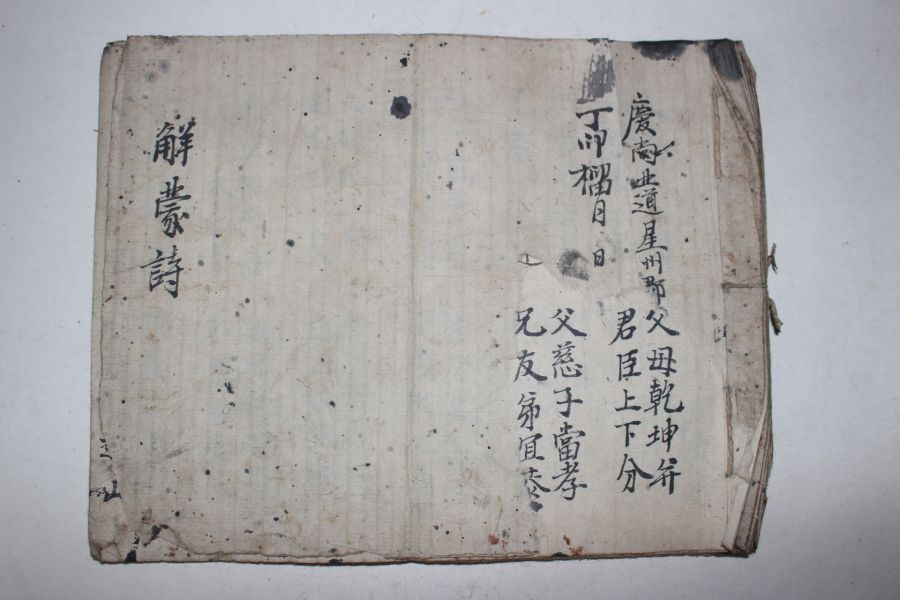 慶尚北道星州郡
丁卯榴月 日
父母乾坤并
君臣上下分
父慈子當孝
兄友弟宜恭
解蒙詩